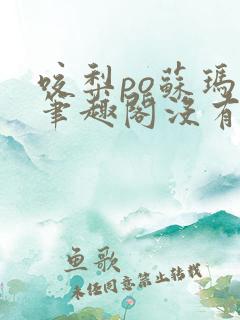 咬梨po蘇瑪
筆趣閣沒有
鱼歌
未经同意禁止转载